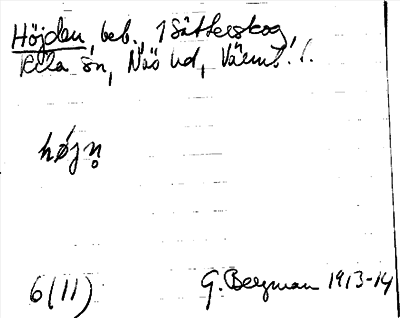 Höjden, beb., i Sätterskog,
Eda sn, Näs hd, Värml.
hǿjn̥
6(11)
G. Bergman 1913-14